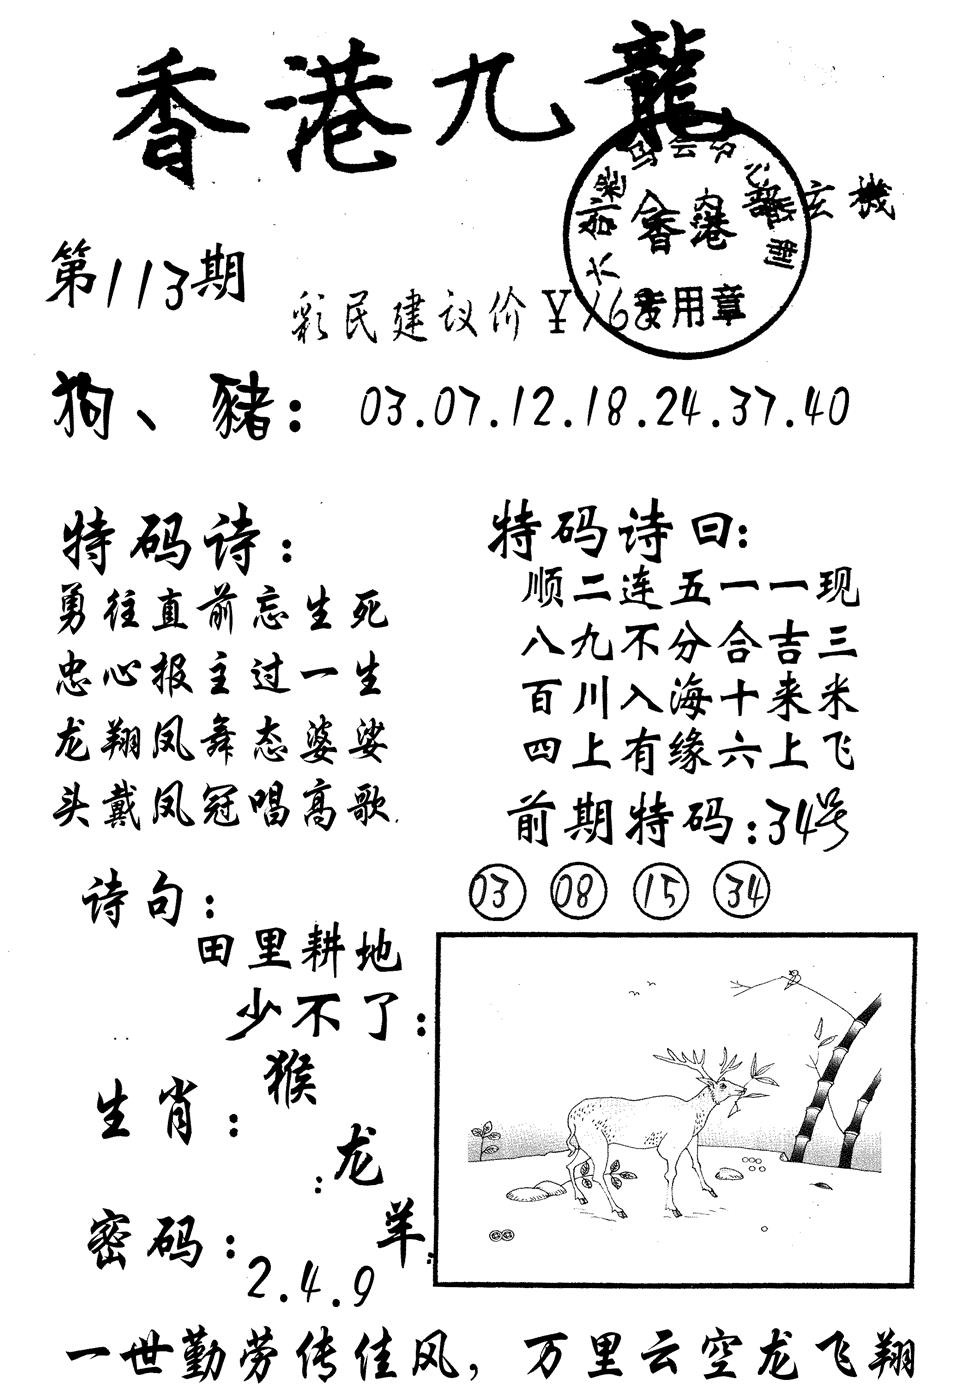 香港九龍
六合彩马会中心监制
香港
专用章
内部玄機
第113期
彩民建议价￥168
狗、豬：03.07.12.18.24.37.40
特码诗：
勇往直前忘生死
忠心报主过一生
龙翔凤舞态婆娑
头戴凤冠唱高歌
特码诗曰：
顺二连五一一现
八九不分合吉三
百川入海十来米
四上有缘六上飞
前期特码：34号
03 08 15 34
诗句：
田里耕地
少不了：
生肖：猴
龙
羊
密码：2.4.9
一世勤劳传佳风，万里云空龙飞翔